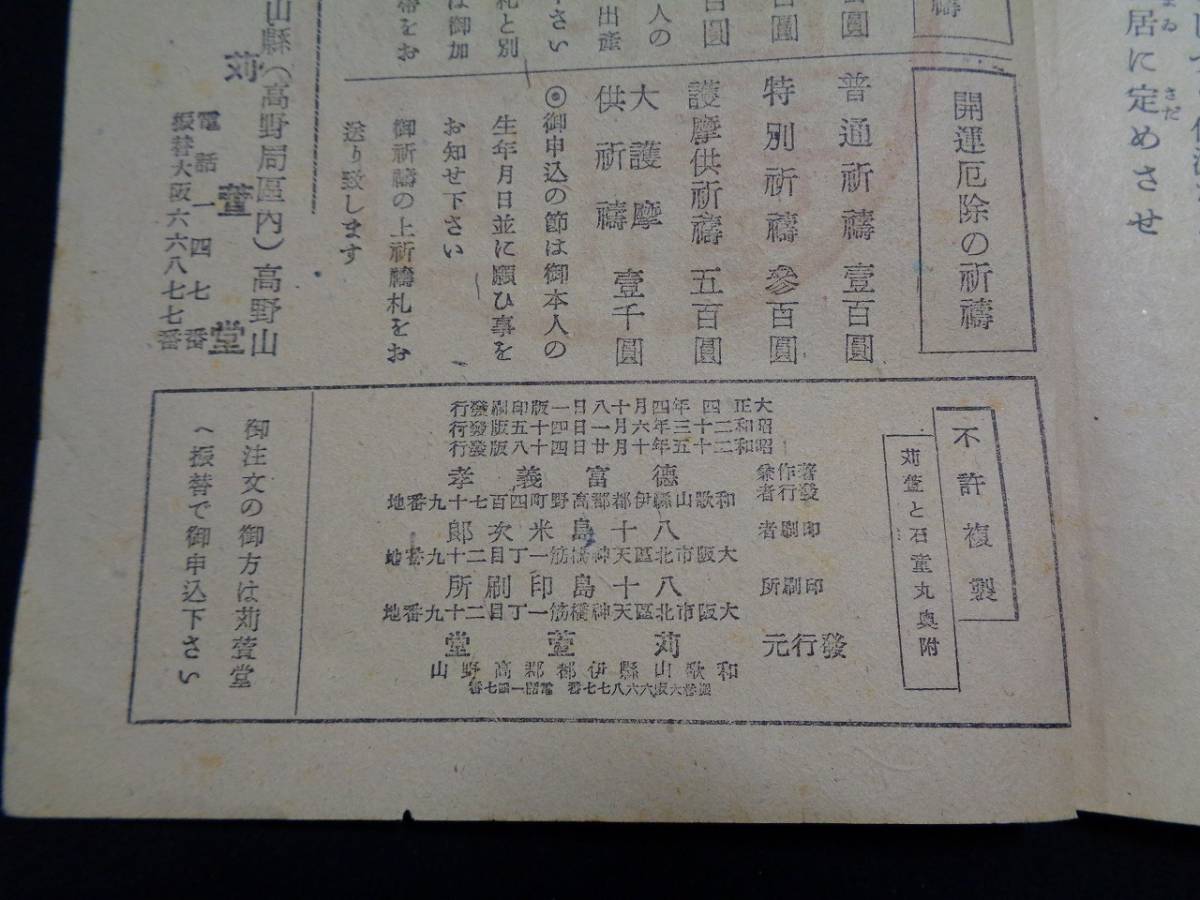 居に定めさせ
ゐ　さだ
禱
百圓
百圓
百圓
開運厄除の祈禱
普通祈禱 壹百圓
特別祈禱 參百圓
護摩供祈禱 五百圓
大護摩供祈禱 壹千圓
◎御申込の節は御本人の
生年月日並に願ひ事を
お知せ下さい
御祈禱の上祈禱札をお
送り致します
山縣(高野局區內)高野山
苅萱堂
電話一四七番
振替大阪六六八七七番
不許複製
苅萱と石童丸奥附
大正四年四月十八日一版印刷發行
昭和二十三年六月一日四十五版發行
昭和二十五年十月廿日四十八版發行
著作兼發行者 德富義孝
和歌山縣伊都郡高野町四百七十九番地
印刷者 八十島米次郎
大阪市北區天神橋筋一丁目二十九番地
印刷所 八十島印刷所
大阪市北區天神橋筋一丁目二十九番地
發行元 苅萱堂
和歌山縣伊都郡高野山
振替大阪六六八七七番 電話一四七番
御注文の御方は苅萱堂
へ振替で御申込下さい